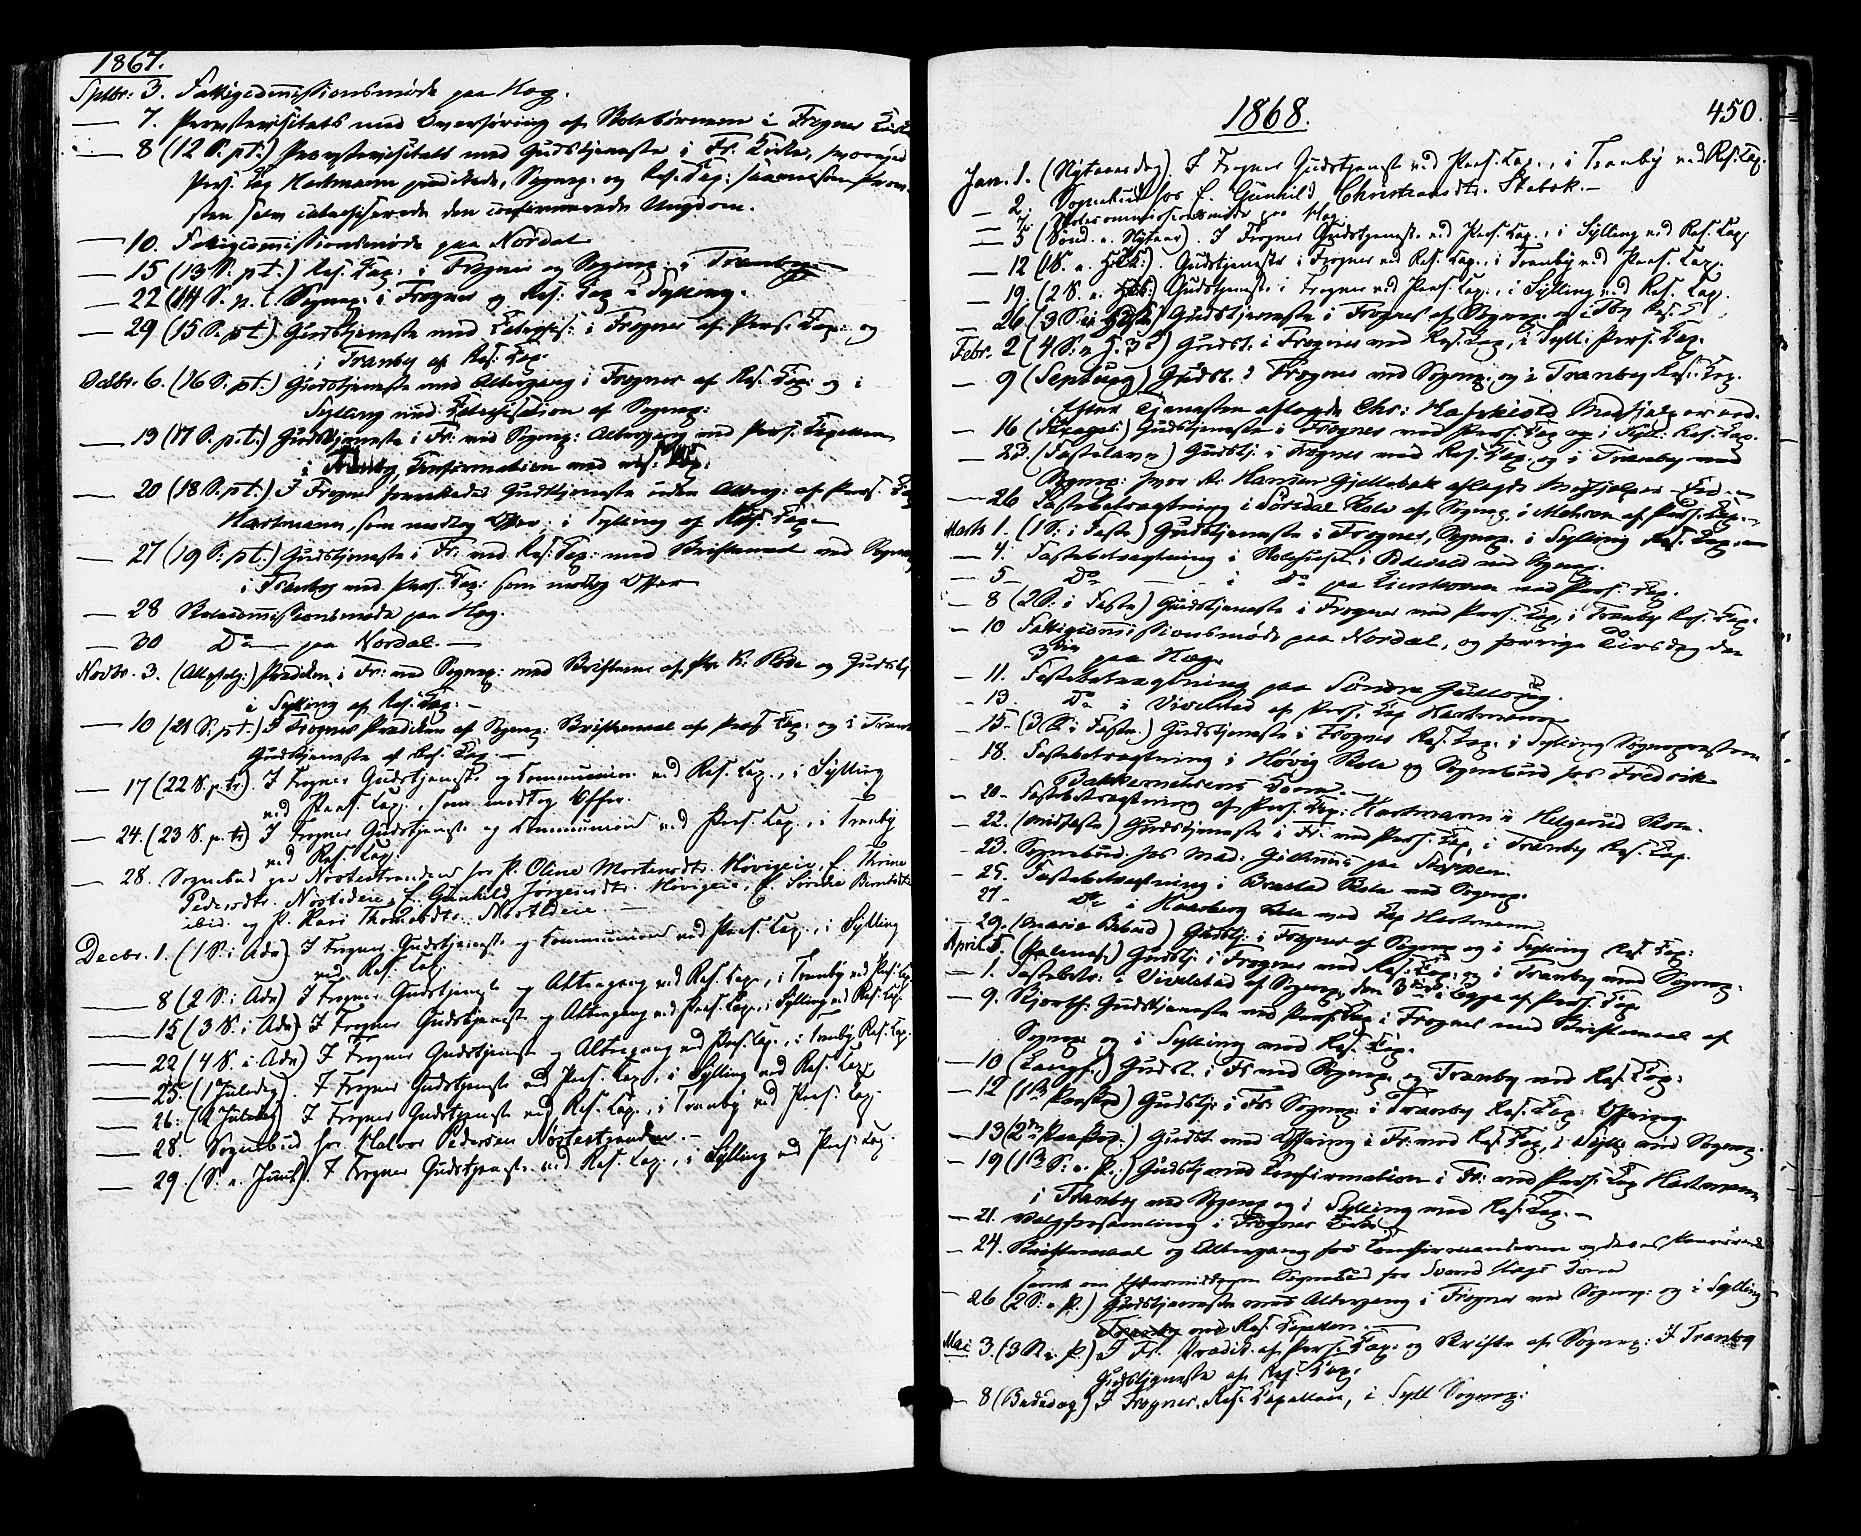 1867.
Septbr. 3. Fattigcommissionsmøde paa Hæg.
— 7. Provstevisitats med Overhøring af Skolebørnene i Frogner Kirke
— 8 (12 S. p. t.) Provstevisitats med Gudstjeneste i Fr. Kirke, hvorved
Pers. Cap Hartmann prædikede, Sognep. og Res. Cap: samt Prov-
sten selv catechiserede den confirmerede Ungdom.
— 10. Fattigcommissionsmøde paa Nordal
— 15 (13 S. p. t.) Res. Cap. i Frogner og Sognep. i Tranby.
— 22 (14 S. p. t. Sognep. i Frogner og Res. Cap i Sylling.
— 29 (15 S. p. t.) Gudstjeneste med Catechis. i Frogner af Pers. Cap. og
i Tranby af Res. Cap.
Octbr. 6. (16 S. p. t.) Gudstjeneste med Altergang i Frogner af Res. Cap. og i
Sylling med Catechisation af Sognep.
— 13 (17 S. p. t.) Gudstjeneste i Fr. ved Sognep. Altergang ved Pers. Capellan
i Tranby Confirmation ved Res. Cap.
— 20 (18 S. p. t.) I Frogner Gudstjeneste uden Alterg. af Pers. Cap
Hartmann, som modtog Offer. i Sylling af Res. Cap.
— 27 (19 S. p. t.) Gudstjeneste i Fr. ved Res. Cap. med Skriftemaal ved Sognep
i Tranby ved Pers. Cap. som modtog Offer
— 28 Skolecommissionsmøde paa Hæg.
— 30 Do paa Nordal. —
Novbr. 3. (Allehelg.) Prædiken i Fr. ved Sognep. med Skriftem. af og Gudstj
i Sylling af Res. Cap. —
— 10 (21 S. p. t.) I Frogner Prædiken af Sognep. Skriftemaal af Pers. Cap. og i Tranby
Gudstjeneste af Res. Cap. —
— 17 (22 S. p. tr.). I Frogner Gudstjeneste og Communion ved Res. Cap., i Sylling
ved Pers. Cap., som modtog Offer.
— 24. (23 S. p. tr) I Frogner Gudstjeneste og Communion ved Pers. Cap., i Tranby
ved Res. Cap.
— 28. Sognebud paa Nørstestranden hos P. Oline Mortensdt. Hörigeie, E. Thrine
Pedersdt. Nösteeie, E. Gunhild Jørgensdt. Hörigeie, E. Sörine
ibid. og P. Kari Nösteeie. —
Decbr. 1. (1 S. i Adv.) I Frogner Gudstjeneste og Communion ved Pers. Cap., i Sylling
ved Res. Cap.
— 8 (2 S. i Adv) I Frogner Gudstjeneste og Altergang ved Res. Cap., i Tranby ved Pers. Cap
— 15 (3 S. i Adv.) I Frogner Gudstjeneste og Altergang ved Pers. Cap., i Sylling ved Res. Cap.
— 22 (4 S. i Adv.) I Frogner Gudstjeneste og Altergang ved Pers. Cap., i Tranby Res. Cap.
— 25. (1 Juledag). I Frogner Gudstjeneste ved Pers. Cap., i Sylling ved Res. Cap.
— 26. (2 Juledag) I Frogner Gudstjeneste ved Res. Cap., i Tranby ved Pers. Cap.
— 28. Sognebud hos Halvor Pedersen Nørstestranden. —
— 29. (S. e. Juul). I Frogner Gudstjeneste ved Res. Cap., i Sylling ved Pers. Cap.
450.
1868.
Jan. 1. (Nytaarsdag). I Frogner Gudstjeneste ved Pers. Cap., i Tranby ved Res. Cap.
— 2. Sognebud hos E. Gunhild Christensdt. Stabek. —
— Skolecommissionsmøde paa Hæg.
— 5 (Sönd. e. Nytaar). I Frogner Gudstjeneste ved Pers. Cap., i Sylling ved Res. Cap.
— 12 (1 S. e. H3K.). Gudstjeneste i Frogner ved Res. Cap., i Tranby ved Pers. Cap.
— 19. (2 S. e. H3K.) Gudstjeneste i Frogner ved Pers. Cap., i Sylling ved Res. Cap.
— 26 (3 S. e. H3K.) Gudstjeneste i Frogner af Sognep. i Tby Res. C
Febr. 2 (4 S. e H. 3 K) Gudst. i Frogner ved Res. Cap, i Syll. Pers. Cap.
— 9 (Septuag) Gudst. i Frogner ved Sognep. og i Tranby Res. Cap.
Efter Tjenesten aflagde Chr: Medhjælper ed.
— 16 (Sexages) Gudstjeneste i Frogner ved Pers. Cap og i Syll. Res. Cap.
— 23. (Fastelavn) Gudstj. i Frogner ved Res. Cap. og i Tranby ved
Sognep. hvor A. Hansen Gjellebek aflagde Medhjælper-Ed. —
— 26 Fastebetragtning i Sørsdal Skole af Sognep. i Mehren af Pers. Cap. —
Marts 1. (1 S. i Faste) Gudstjeneste i Frogner, Sognep. i Sylling Res. Cap. —
— 4. Fastebetragtning i Skolehuset i Oddevald ved Sognep.
— 5 Do i Do paa ved Pers. Cap.
— 8 (2 S. i Faste) Gudstjeneste i Frogner ved Pers. Cap, i Tranby Res. Cap.
— 10 Fattigcommissionsmøde paa Nordal, og forrige Tirsdag den
3die paa Hæg.
— 11. Fastebetragtning paa Søndre Gullaug.
— 13. Do i Vivelstad af Pers. Cap Hartmann
— 15. (3 S. i Faste.) Gudstjeneste i Frogner Res. Cap. i Sylling Sognepresten
— 18. Fastebetragtning i Høvig Skole og Sognebud hos Fredrik
Bakkerneiens Kone. —
— 20 — Fastebetragtning af Pers. Cap. Hartmann i Helgerud Skole.
— 22. (Midfaste) Gudstjeneste i Fr. ved Pers. Cap, i Tranby Res. Cap.
— 23. Sognebud hos Mad. paa Steppen.
— 25. Fastebetragtning i Brastad Skole ved Sognep.
— 27 — Do i Haasberg Skole ved Cap Hartmann
— 29. (Mariæ Bebud) Gudstj. i Frogner af Sognep og i Sylling Res. Cap.
April 5. (Palmes.) Gudstj. i Frogner ved Res. Cap. og i Tranby ved Sognep.
— 1. Fastebetr. i Vivelstad af Sognep, den 3die i Egge af Pers. Cap
— 9. Skjærth. Gudstjeneste ved Pers. Cap i Frogner med Skriftemaal af
Sognep. og i Sylling ved Res. Cap.
— 10 (Langf.) Gudst. i Fr. ved Sognep. og Tranby ved Res. Cap.
— 12 (1ste Paaskd) Gudstj. i Fr. Sognep. i Tranby Res. Cap. Offring
— 13 (2den Paaskd.) Gudst. med Offring i Fr. ved Res. Cap, i Sylls ved Sognep.
— 19 (1ste S. e. P.) Gudstj. med Confirmation i Fr. ved Pers. Cap Hartmann
i Tranby ved Sognep og i Sylling ved Res. Cap. —
— 21. Valgforsamling i Frogner Kirke
— 24. Skriftemaal og Altergang for Confirmanderne og deres Paarørende
samt om Eftermiddagen Sognebud hos Svend Hægs Kone
— 26 (2 S. e P.) Gudstjeneste med Altergang i Frogner ved Sognep. og i Sylling
Tranby ved Res. Capellan. —
Mai 3. (3 S. e P.) I Fr. Prædik. af Pers. Cap. og Skrifte af Sognep. I Tranby
Gudstjeneste af Res. Cap.
— 8 (Bededag) I Frogner, Res. Capellan, i Syll Sognep.